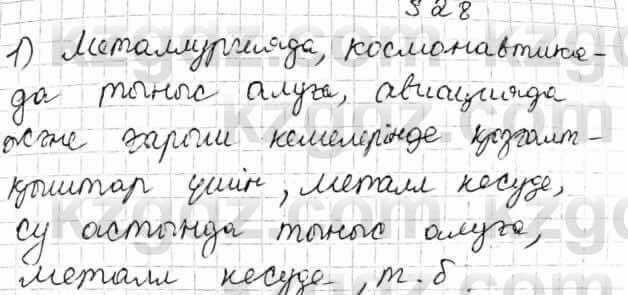 § 28
1) Металлургияда, космонавтика-
да тыныс алуға, авиацияда
және ғарыш кемелерінде қозғалт-
қыштар үшін, металл кесуде,
су астында тыныс алуға,
металл кесуде, т.б.